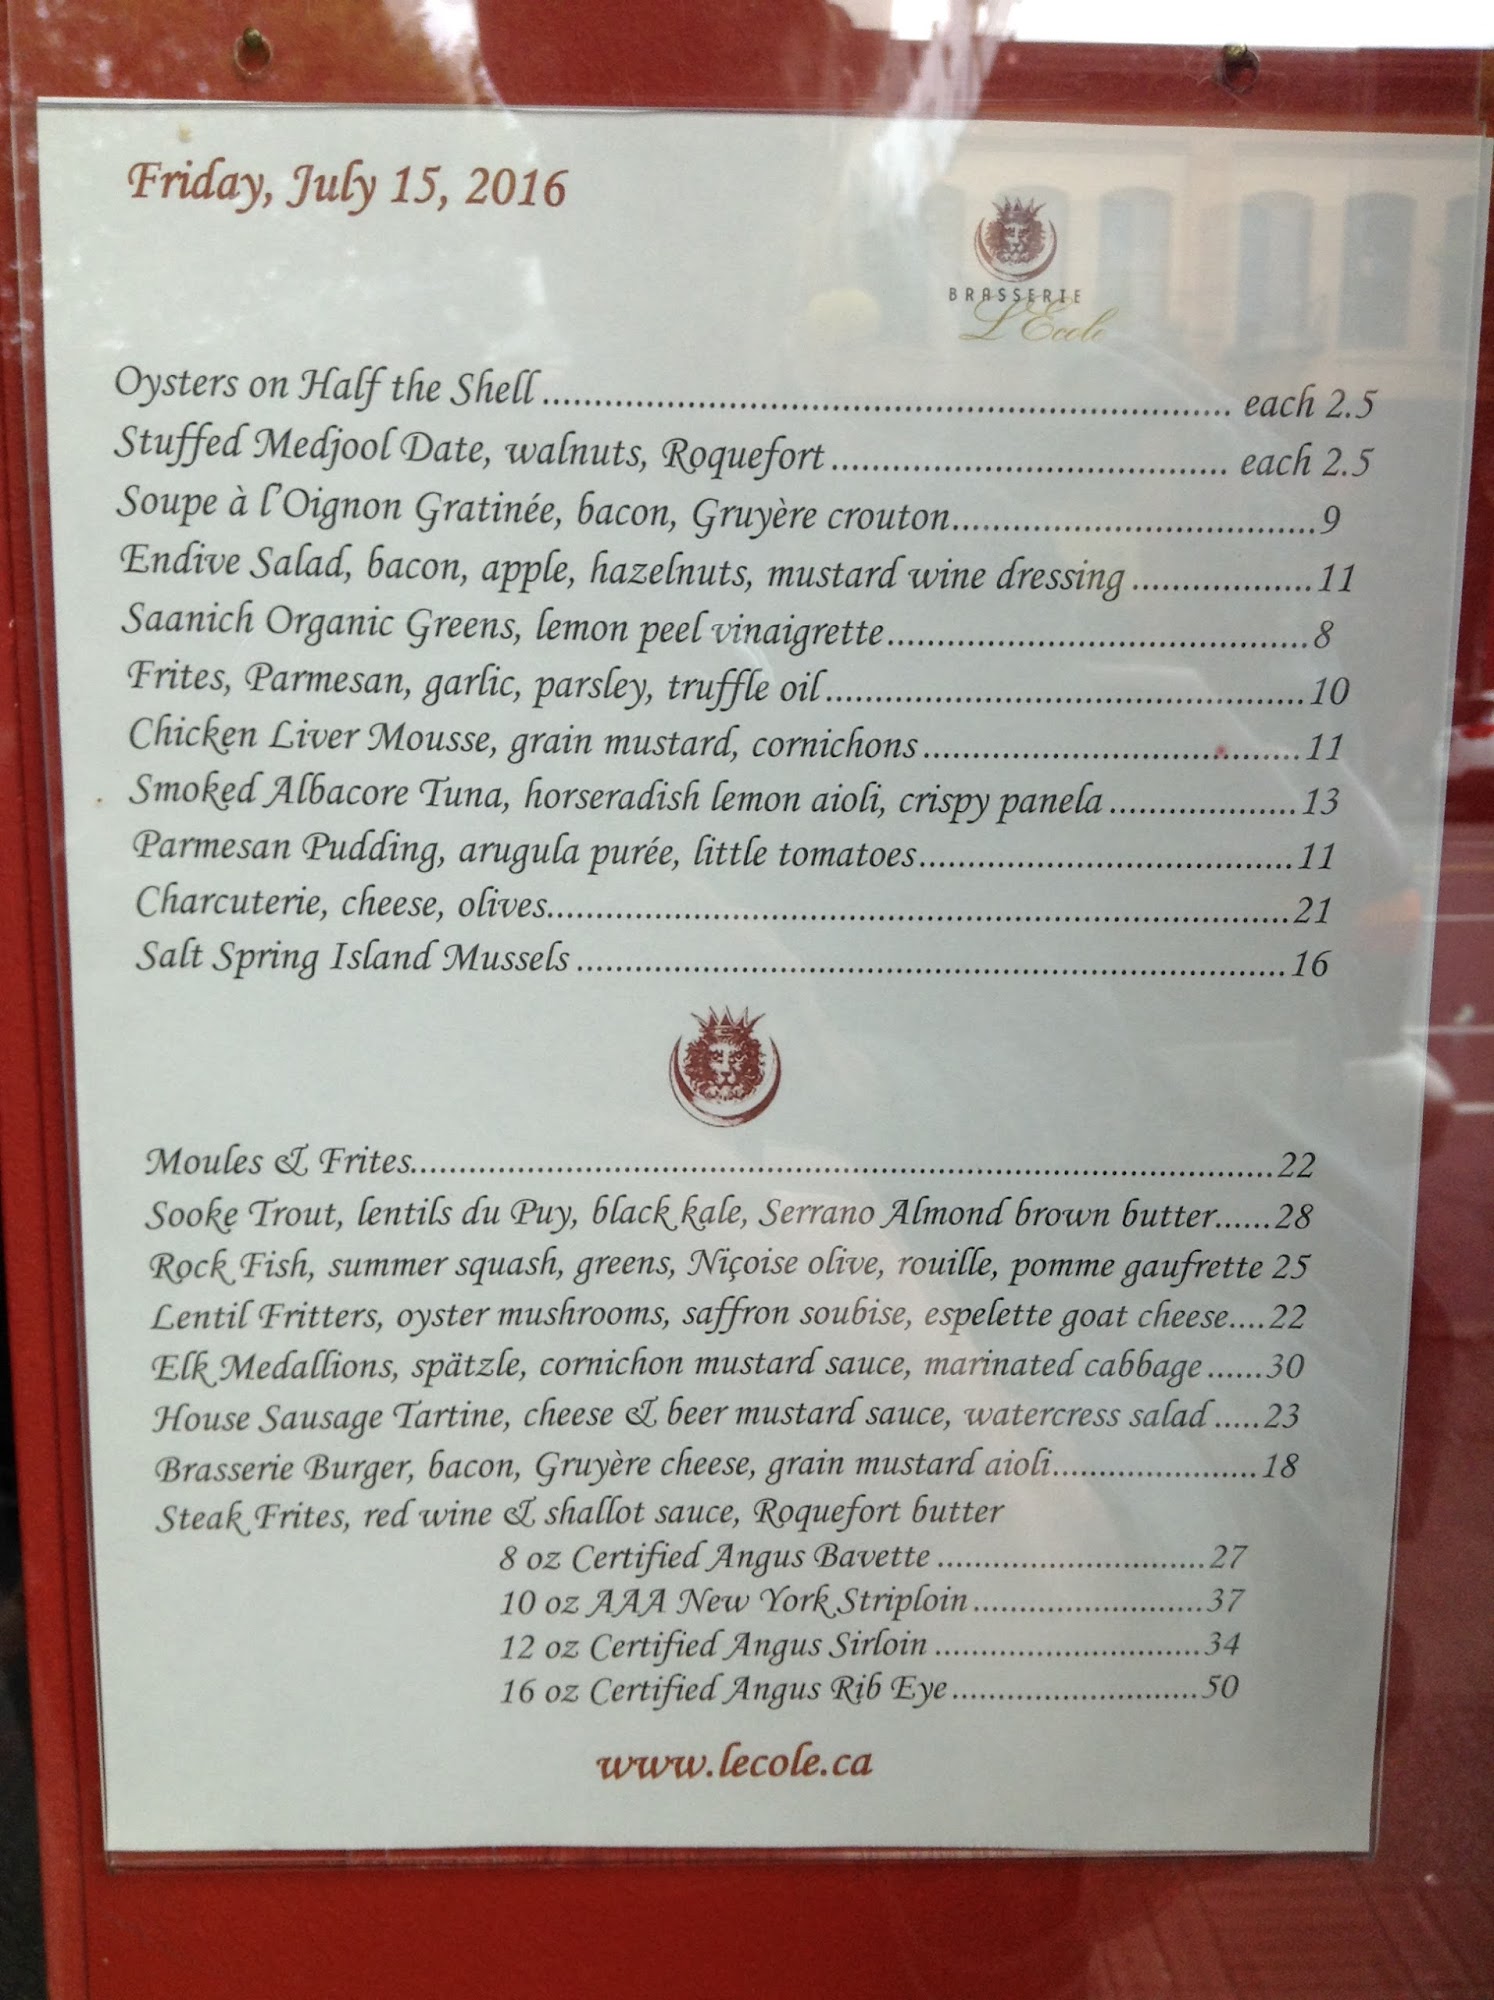 Friday, July 15, 2016
BRASSERIE
L'Ecole
Oysters on Half the Shell.................................................................. each 2.5
Stuffed Medjool Date, walnuts, Roquefort...................................... each 2.5
Soupe à l'Oignon Gratinée, bacon, Gruyère crouton...................................9
Endive Salad, bacon, apple, hazelnuts, mustard wine dressing..................11
Saanich Organic Greens, lemon peel vinaigrette........................................8
Frites, Parmesan, garlic, parsley, truffle oil..............................................10
Chicken Liver Mousse, grain mustard, cornichons.....................................11
Smoked Albacore Tuna, horseradish lemon aioli, crispy panela..................13
Parmesan Pudding, arugula purée, little tomatoes.....................................11
Charcuterie, cheese, olives........................................................................21
Salt Spring Island Mussels.....................................................................16
Moules & Frites......................................................................................22
Sooke Trout, lentils du Puy, black kale, Serrano Almond brown butter......28
Rock Fish, summer squash, greens, Niçoise olive, rouille, pomme gaufrette 25
Lentil Fritters, oyster mushrooms, saffron soubise, espelette goat cheese....22
Elk Medallions, spätzle, cornichon mustard sauce, marinated cabbage......30
House Sausage Tartine, cheese & beer mustard sauce, watercress salad.....23
Brasserie Burger, bacon, Gruyère cheese, grain mustard aioli......................18
Steak Frites, red wine & shallot sauce, Roquefort butter
8 oz Certified Angus Bavette............................27
10 oz AAA New York Striploin........................37
12 oz Certified Angus Sirloin............................34
16 oz Certified Angus Rib Eye..........................50
www.lecole.ca